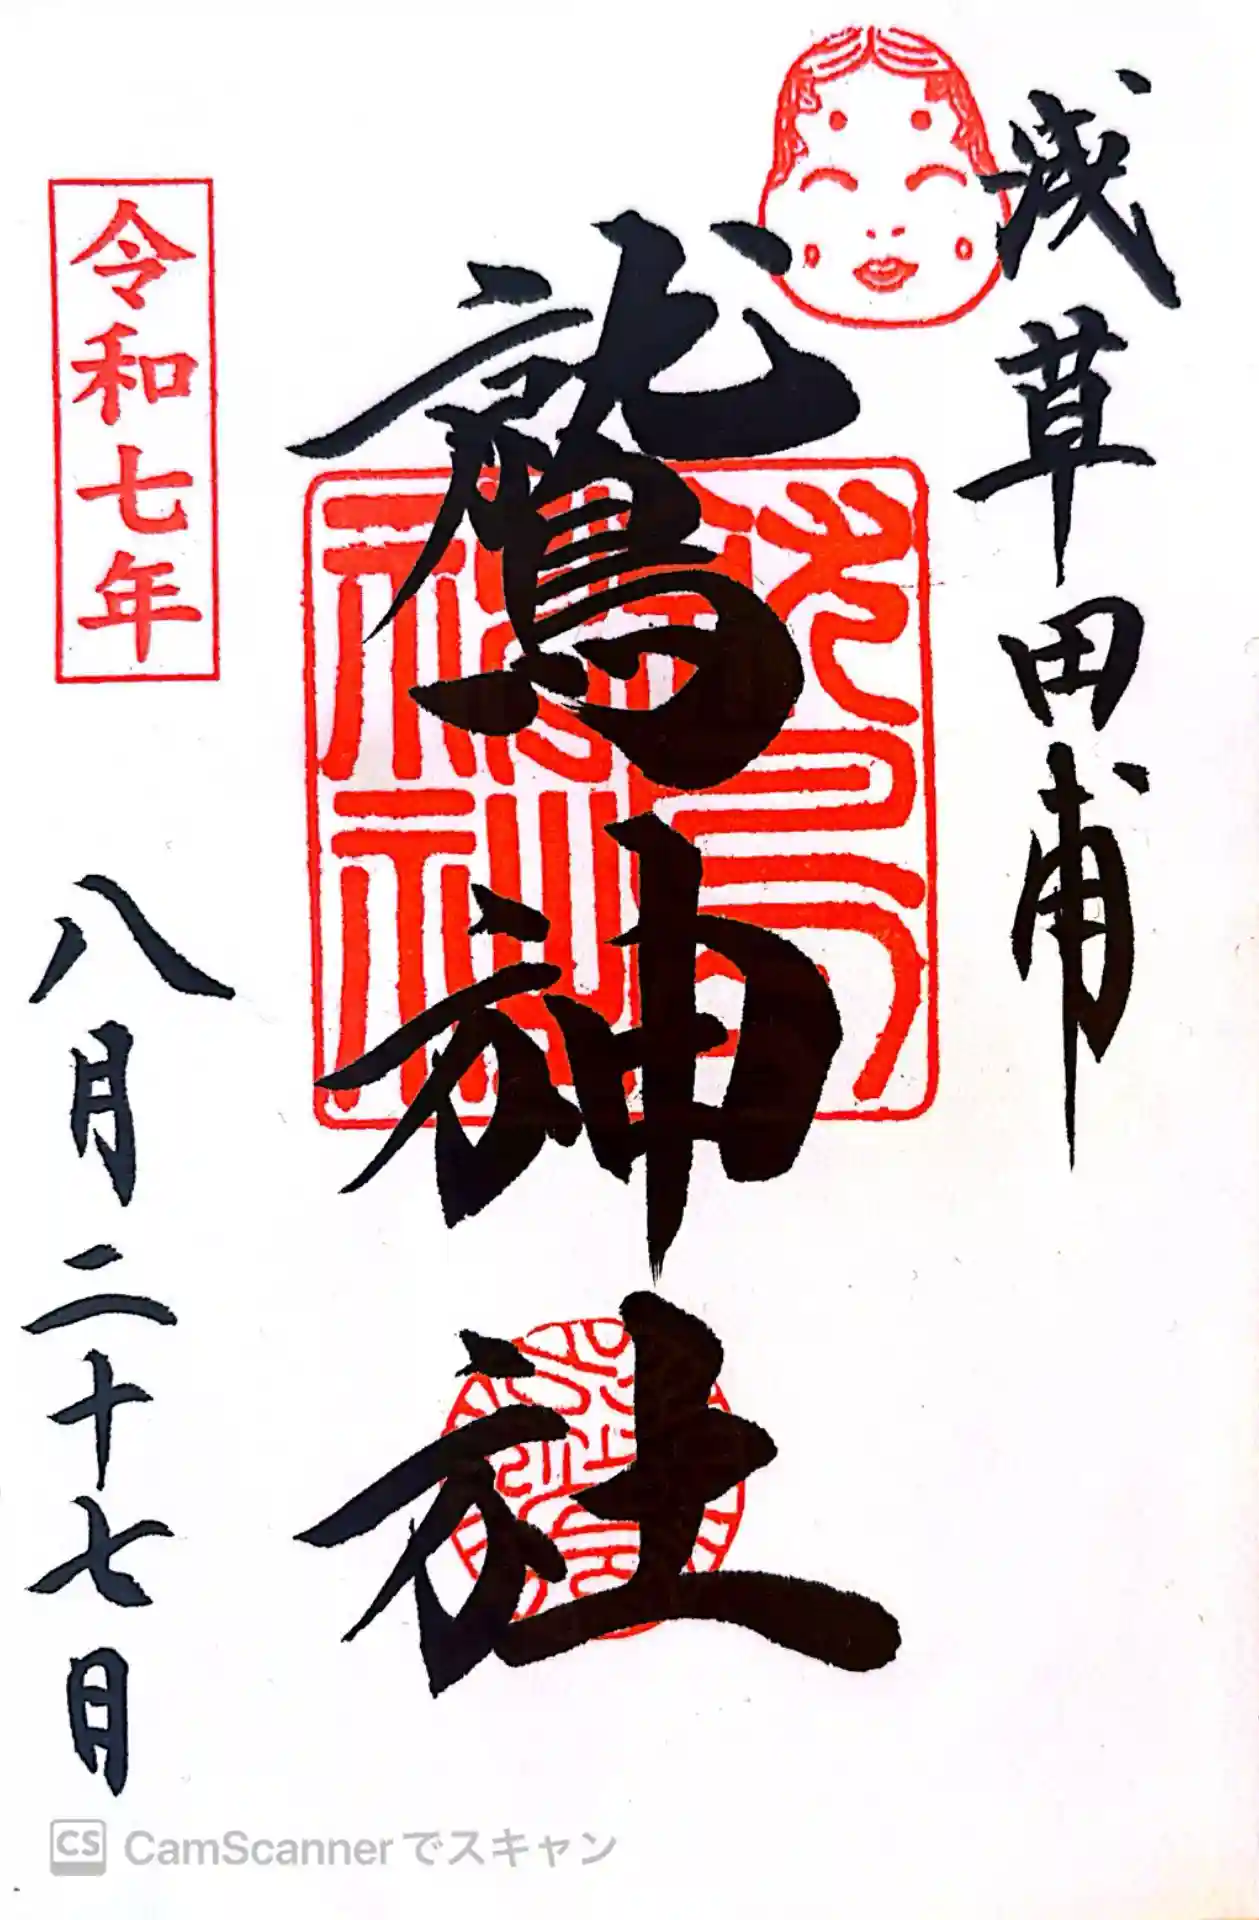 浅草田甫
鷲神社
令和七年
八月二十七日
CS CamScannerでスキャン